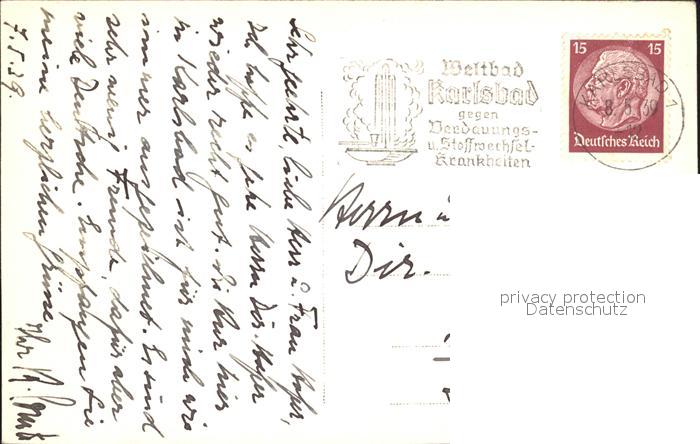 Sehr geehrte, liebe Herr u. Frau
Ich hoffe es gehe Herrn Dir.
wieder recht gut. Die Kur hier
in Karlsbad ist für mich wie
immer ausgezeichnet. Es sind
sehr wenig Fremde, dafür aber
viele Deutsche. Empfangen Sie
meine herzlichen Grüsse
Ihr
7.5.39.
Weltbad
Karlsbad
gegen
Verdauungs-
u. Stoffwechsel-
Krankheiten
15 15
Deutsches Reich
KARLSBAD 1
Herrn u
Dir.
privacy protection
Datenschutz